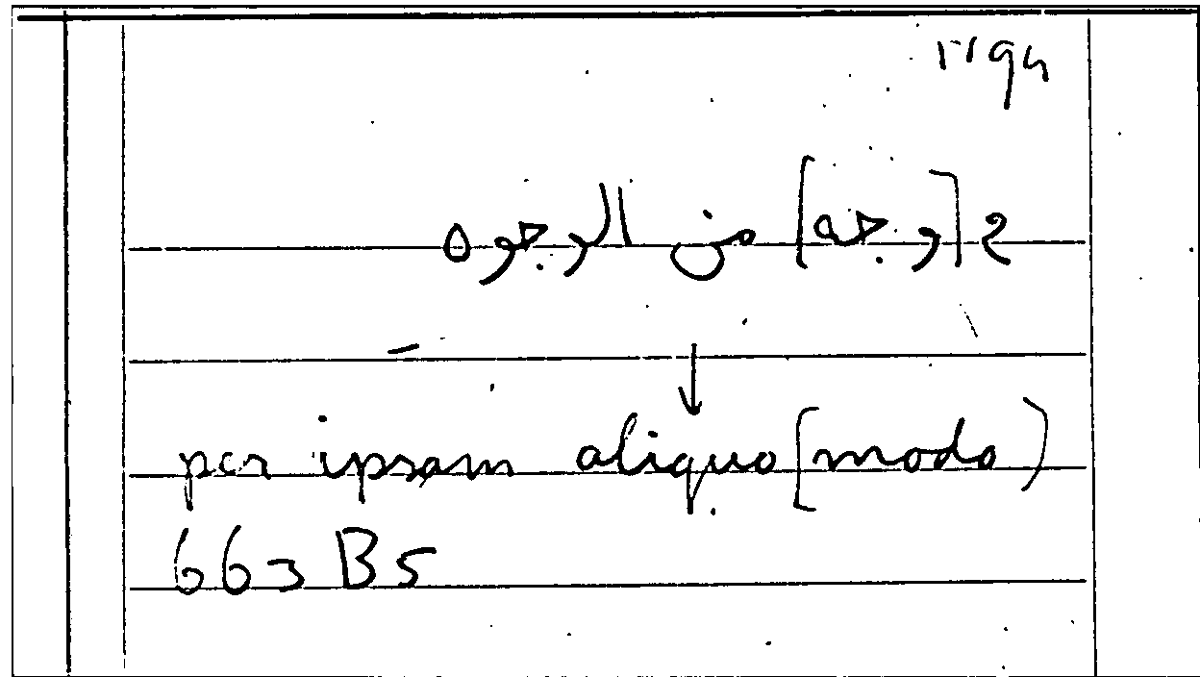 [وجه] من الوجوه
↓
per ipsam aliquo [modo)
663 B5